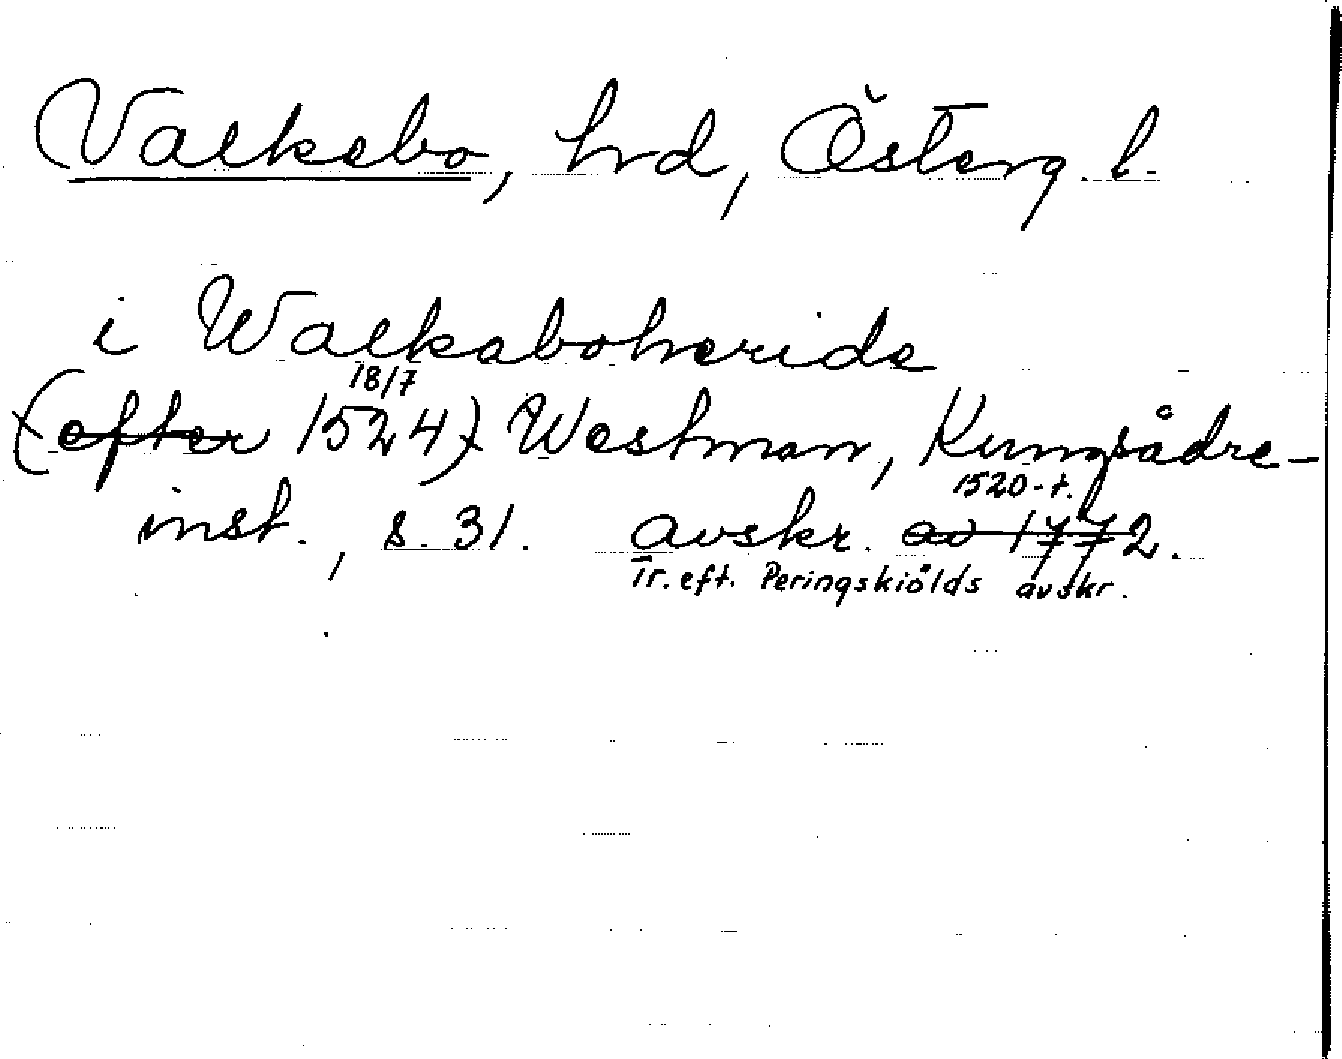 Valkebo, hrd, Österg. l.
i Walkaboheride
18/7
(efter 1524) Westman, Kungsådre-
1520-t.
inst., s. 31. avskr. av 1772.
Tr. eft. Peringskiölds avskr.